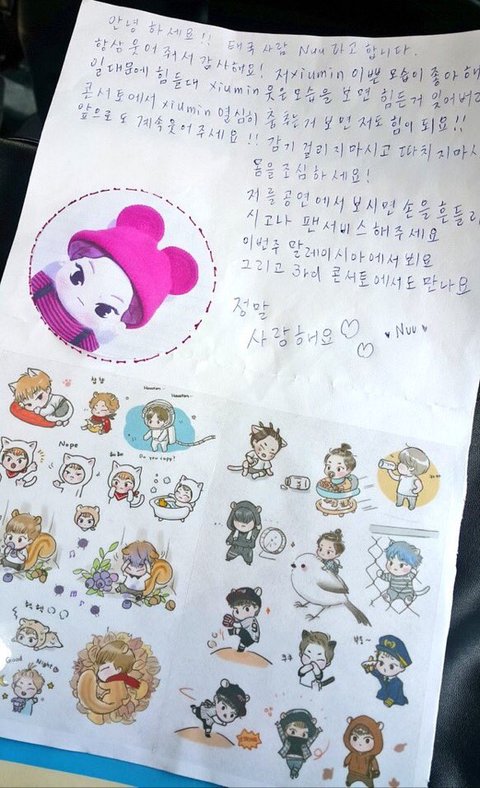 안녕 하세요!! 태국 사람 Nuu 라고 합니다.
항상 웃어 줘서 감사해요! 저 xiumin 이쁜 모습이 좋아 해
일 대문에 힘들대 xiumin 웃은 모습을 보면 힘든거 잊어버
콘서토에서 xiumin 열심히 춤 추는거 보면 저도 힘이 되요!!
앞으로도 계속 웃어 주세요!! 감기 걸리지 마시고 다치지 마시
몸을 조심 하세요!
저를 공연에서 보시면 손을 흔들리
시고나 팬 서비스 해주세요
이번주 말레이시아에서 뵈요
그리고 콘서토에서도 만나요
정말
사랑해요
Nuu
Nope
Houston..
Houston..
Do you copy?
Good Night